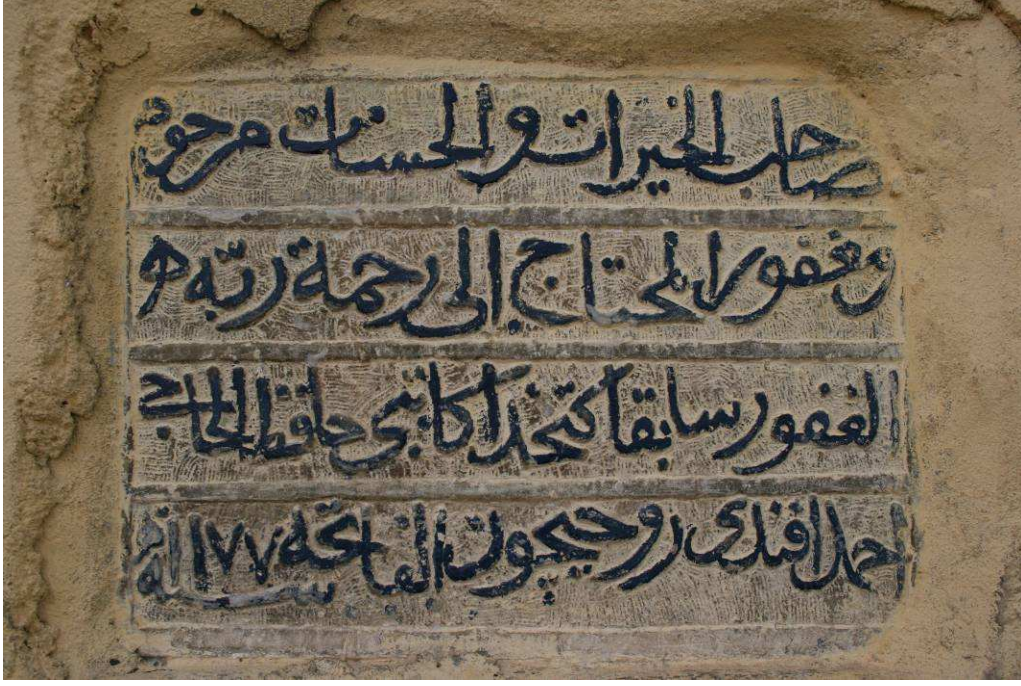 صاحب الخيرات والحسنات مرحوم
ومغفور المحتاج الى رحمة ربّه
الغفور سابقا كتخدا كاتبى حافظ الحاجى
احمد افندى روحيچون الفاتحه سنه ١١٧٧